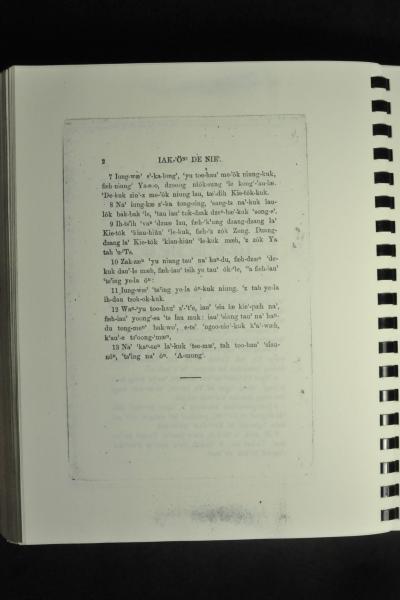 2 IAK-'Öⁿ' DÈ NIE'.
7 Iung-wæ' s'-ka-long', 'yu too-hau' me'-'ôk niung-kuk,
fieh-niung' Ya-s-o, dzoong niók-sung 'le kong'-'au-læ.
'De-kuk zie'-z me-'ôk niung lau, tæ'-dih Kie-tók-kuk.
8 Na' iung-kæ s'-ka tong-sing, 'sang-ts na'-kuk lau-
lôk bak-bak 'le, 'tau iau' tok-dzak dzeⁿ-bæ'-kuk 'song-s'.
9 Ih-ts'ih 'vaⁿ 'dzue lau, fieh-k'ung dzang-dzang la'
Kie-tók 'kiau-hiün' 'le-kuk, fieh-'z zók Zung. Dzang-
dzang la' Kie-tók 'kiau-hiün' 'le-kuk mæh, 'z zók Ya
tah 'n-'Ts.
10 Zak-zæⁿ 'yu niang tau' na' haⁿ-du, fieh-dzæⁿ 'de-
kuk dau'-le mæh, fieh-iau' tsih yu tau' ók-'le, 'a fieh-iau'
'ts'ing ye-la óⁿ:
11 Iung-wæ' 'ts'ing ye-la óⁿ-kuk niung, 'z tah ye-la
ih-dau tsok-ok-kuk.
12 Wæⁿ-'yu too-hau' s'-'t'e, iau' 'sia læ kie'-pah na',
fieh-iau' yoong'-sa 'ts lau muk: iau' 'siang tau' na' haⁿ-
du tong-meⁿ' bak-wo', e-ts' 'ngoo-nie'-kuk k'a'-wæh,
k'au'-e ts'oong-'mæⁿ,
13 Na' 'kaⁿ-zæⁿ la'-kuk 'tse-mæ', tah too-hau' 'siau-
nóⁿ, 'ts'ing na' óⁿ. 'A-mung'.